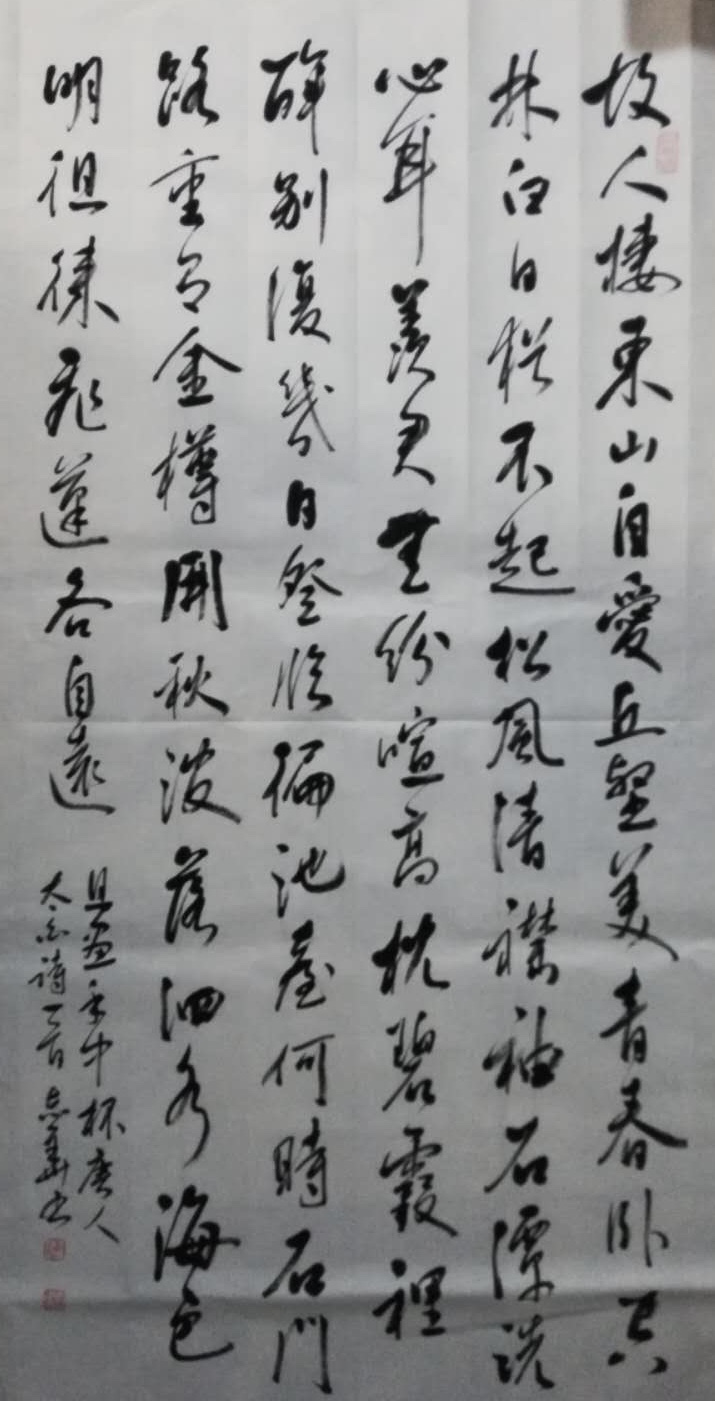 故人棲東山自愛丘壑美青春卧空
林白日猶不起松風清襟袖石潭洗
心耳羨君無紛喧高枕碧霞裡
醉別復幾日登臨徧池臺何時石門
路重有金樽開秋波落泗水海色
明徂徠飛蓬各自遠
且盡手中杯唐人
太白詩二首